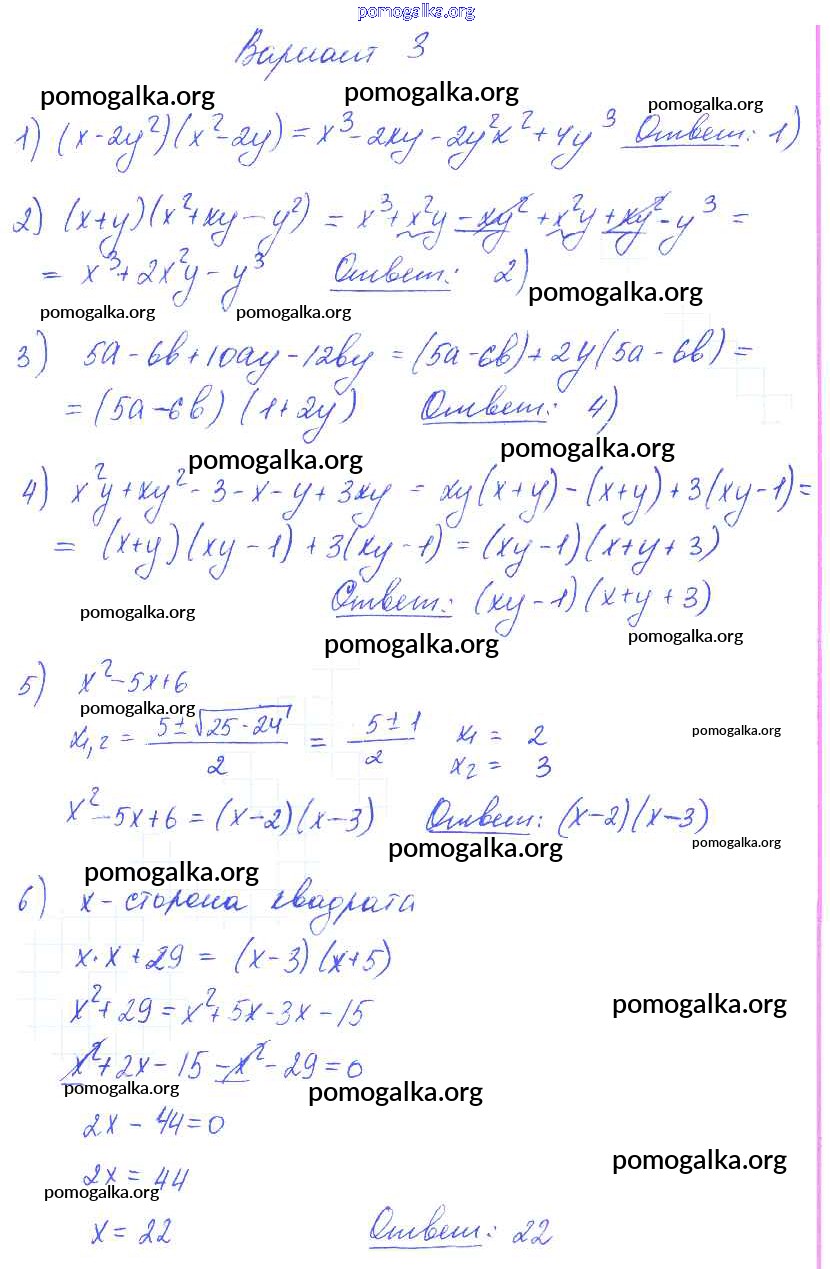 pomogalka.org
Вариант 3
pomogalka.org pomogalka.org pomogalka.org
1) (x-2y²)(x²-2y) = x³-2xy-2y²x²+4y³ Ответ: 1)
2) (x+y)(x²+xy-y²) = x³+x²y-xy²+x²y+xy²-y³ =
= x³+2x²y-y³ Ответ: 2)
pomogalka.org
pomogalka.org pomogalka.org
3) 5a-6b+10ay-12by = (5a-6b)+2y(5a-6b) =
= (5a-6b)(1+2y) Ответ: 4)
pomogalka.org pomogalka.org
4) x²y+xy²-3-x-y+3xy = xy(x+y)-(x+y)+3(xy-1) =
= (x+y)(xy-1)+3(xy-1) = (xy-1)(x+y+3)
Ответ: (xy-1)(x+y+3)
pomogalka.org
pomogalka.org pomogalka.org
5) x²-5x+6
pomogalka.org
x₁,₂ = (5±√25-24)/2 = (5±1)/2 x₁ = 2
x₂ = 3
pomogalka.org
x²-5x+6 = (x-2)(x-3) Ответ: (x-2)(x-3)
pomogalka.org pomogalka.org
pomogalka.org
6) x - сторона квадрата
x·x+29 = (x-3)(x+5)
x²+29 = x²+5x-3x-15
pomogalka.org
x²+2x-15-x²-29=0
pomogalka.org pomogalka.org
2x-44=0
pomogalka.org
2x = 44
pomogalka.org
x = 22 Ответ: 22